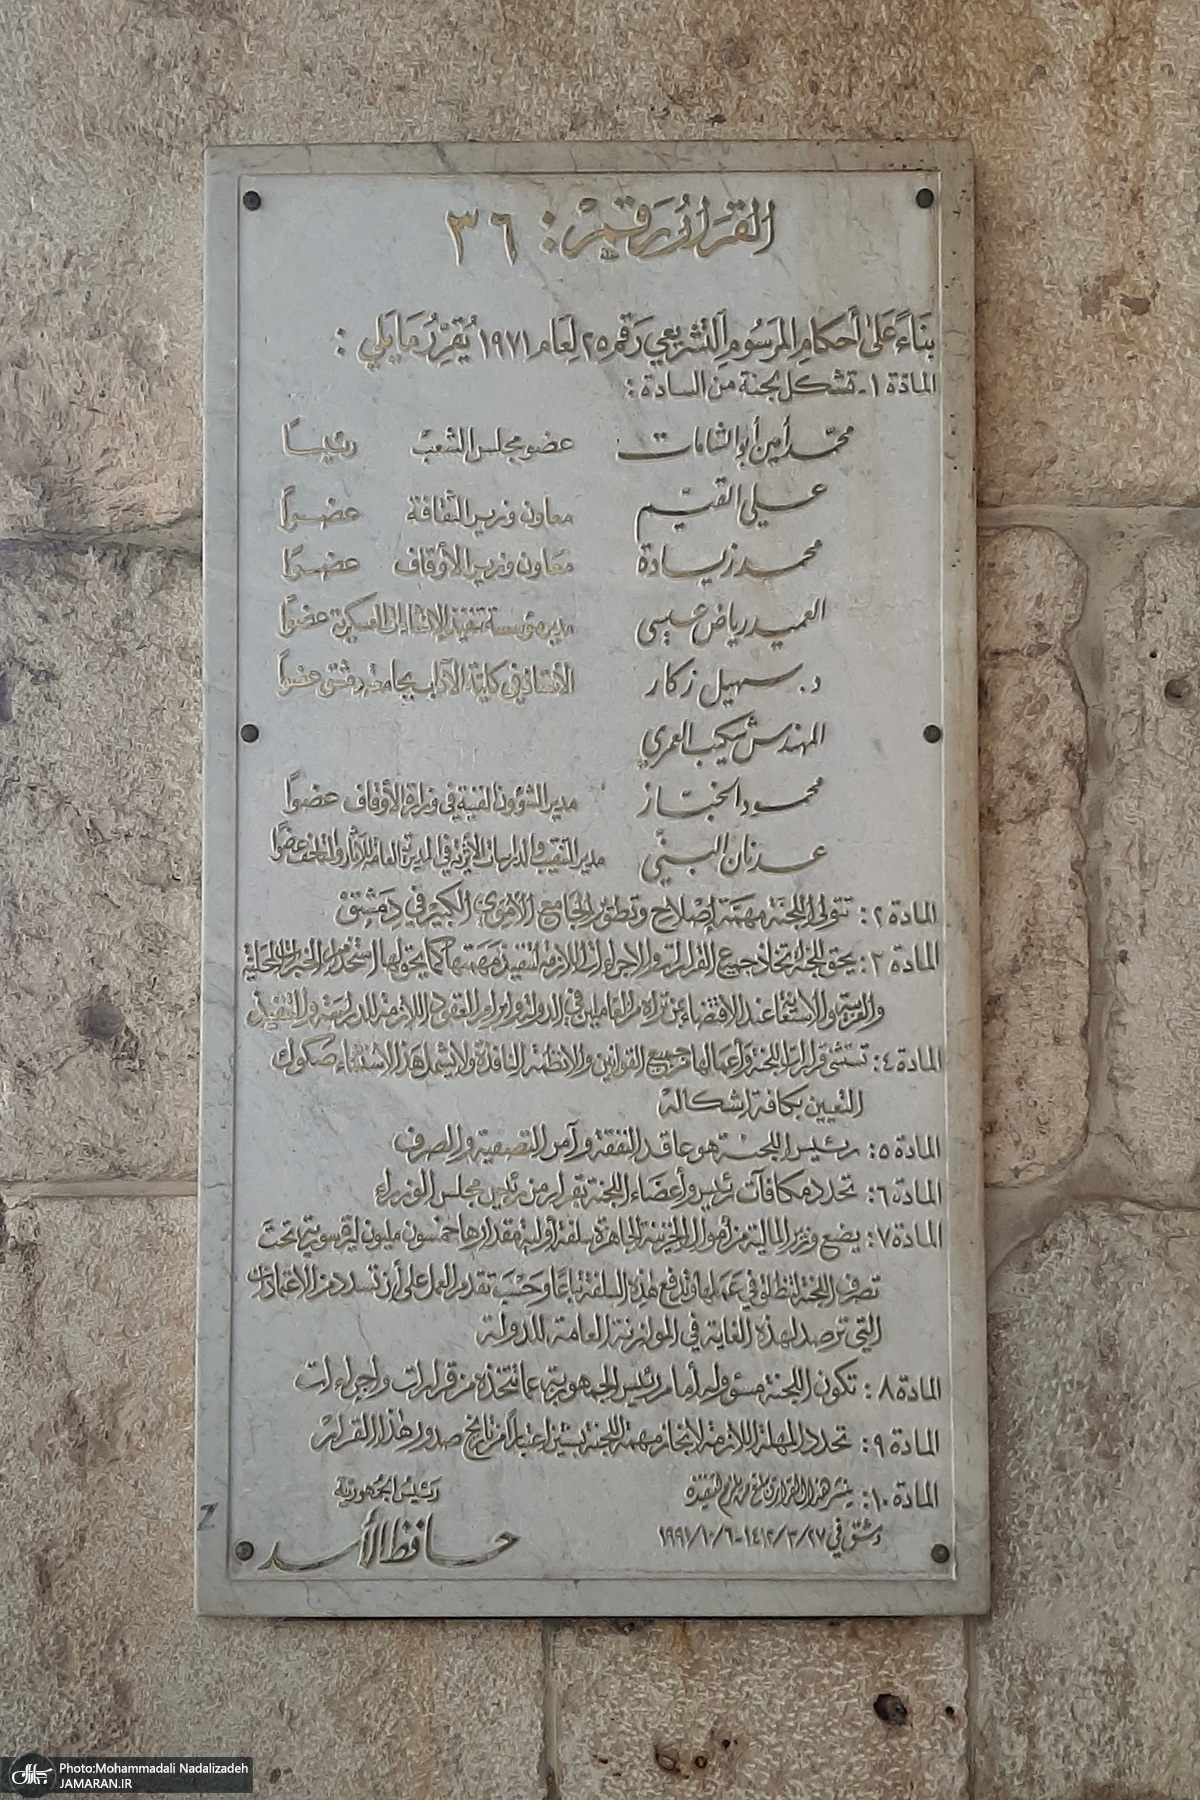 القرار رقم : ٣٦
بناءً على أحكام المرسوم التشريعي رقم ٢٥ لعام ١٩٧١ يُقرر ما يلي :
المادة ١- تشكل لجنة من السادة :
محمد أمين أبو الشامات عضو مجلس الشعب رئيساً
علي القيّم معاون وزير الثقافة عضواً
محمد زيادة معاون وزير الأوقاف عضواً
العميد رياض عيسى مدير مؤسسة تنفيذ الإنشاءات العسكرية عضواً
د. سهيل زكار الأستاذ في كلية الآداب بجامعة دمشق عضواً
المهندس شكيب العمري
محمود الخبّاز مدير الشؤون الفنية في وزارة الأوقاف عضواً
عدنان البنّي مدير التنقيب والدراسات الأثرية في المديرية العامة للآثار والمتاحف عضواً
المادة ٢: تتولى اللجنة مهمة إصلاح وتطوير الجامع الأموي الكبير في دمشق
المادة ٣: يحق للجنة اتخاذ جميع القرارات والإجراءات اللازمة لتنفيذ مهمتها كما يحق لها استخدام الخبرات المحلية
والعربية والاستغناء عند الاقتضاء عن تراه من العاملين في الدولة وإبرام العقود اللازمة للدراسة والتنفيذ
المادة ٤: تستثنى قرارات اللجنة وأعمالها من جميع القوانين والأنظمة النافذة ولا يشمل هذا الاستثناء صكوك
التعيين بكافة أشكاله
المادة ٥: رئيس اللجنة هو عاقد النفقة وآمر التصفية والصرف
المادة ٦: تحدد مكافآت رئيس وأعضاء اللجنة بقرار من رئيس مجلس الوزراء
المادة ٧: يضع وزير المالية من أموال الخزينة الجاهزة سلفة أولية مقدارها خمسون مليون ليرة سورية تحت
تصرف اللجنة لتنطلق في عملها وتدفع هذه السلفة تباعاً وحسب تقدم العمل على أن تسدد من الاعتمادات
التي ترصد لهذه الغاية في الموازنة العامة للدولة
المادة ٨: تكون اللجنة مسؤولة أمام رئيس الجمهورية عما تتخذه من قرارات وإجراءات
المادة ٩: تحدد المهلة اللازمة لإنجاز مهمة اللجنة بسنتين اعتباراً من تاريخ صدور هذا القرار
المادة ١٠: ينشر هذا القرار ويبلغ من يلزم لتنفيذه
دمشق في ٢٧/٣/١٤١٢ - ٦/١٠/١٩٩١
رئيس الجمهورية
حافظ الأسد
Photo:Mohammadali Nadalizadeh
JAMARAN.IR